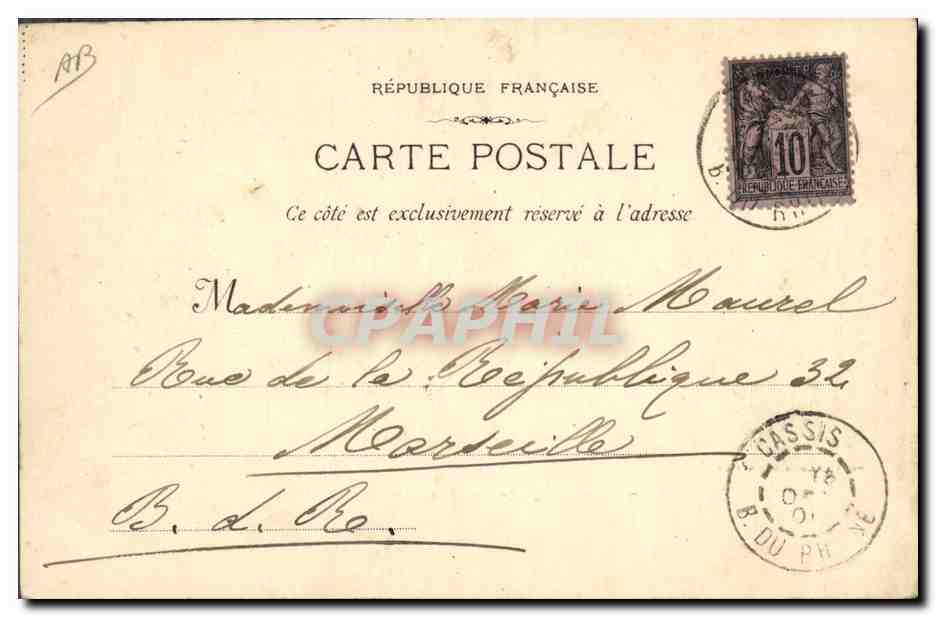 AB
RÉPUBLIQUE FRANÇAISE
CARTE POSTALE
Ce côté est exclusivement réservé à l'adresse
10
REPUBLIQUE FRANÇAISE
B. RH
Mademoiselle Marie Maurel
CPAPHIL
Rue de la République 32
Marseille
B. d. R.
CASSIS
B. DU RHONE